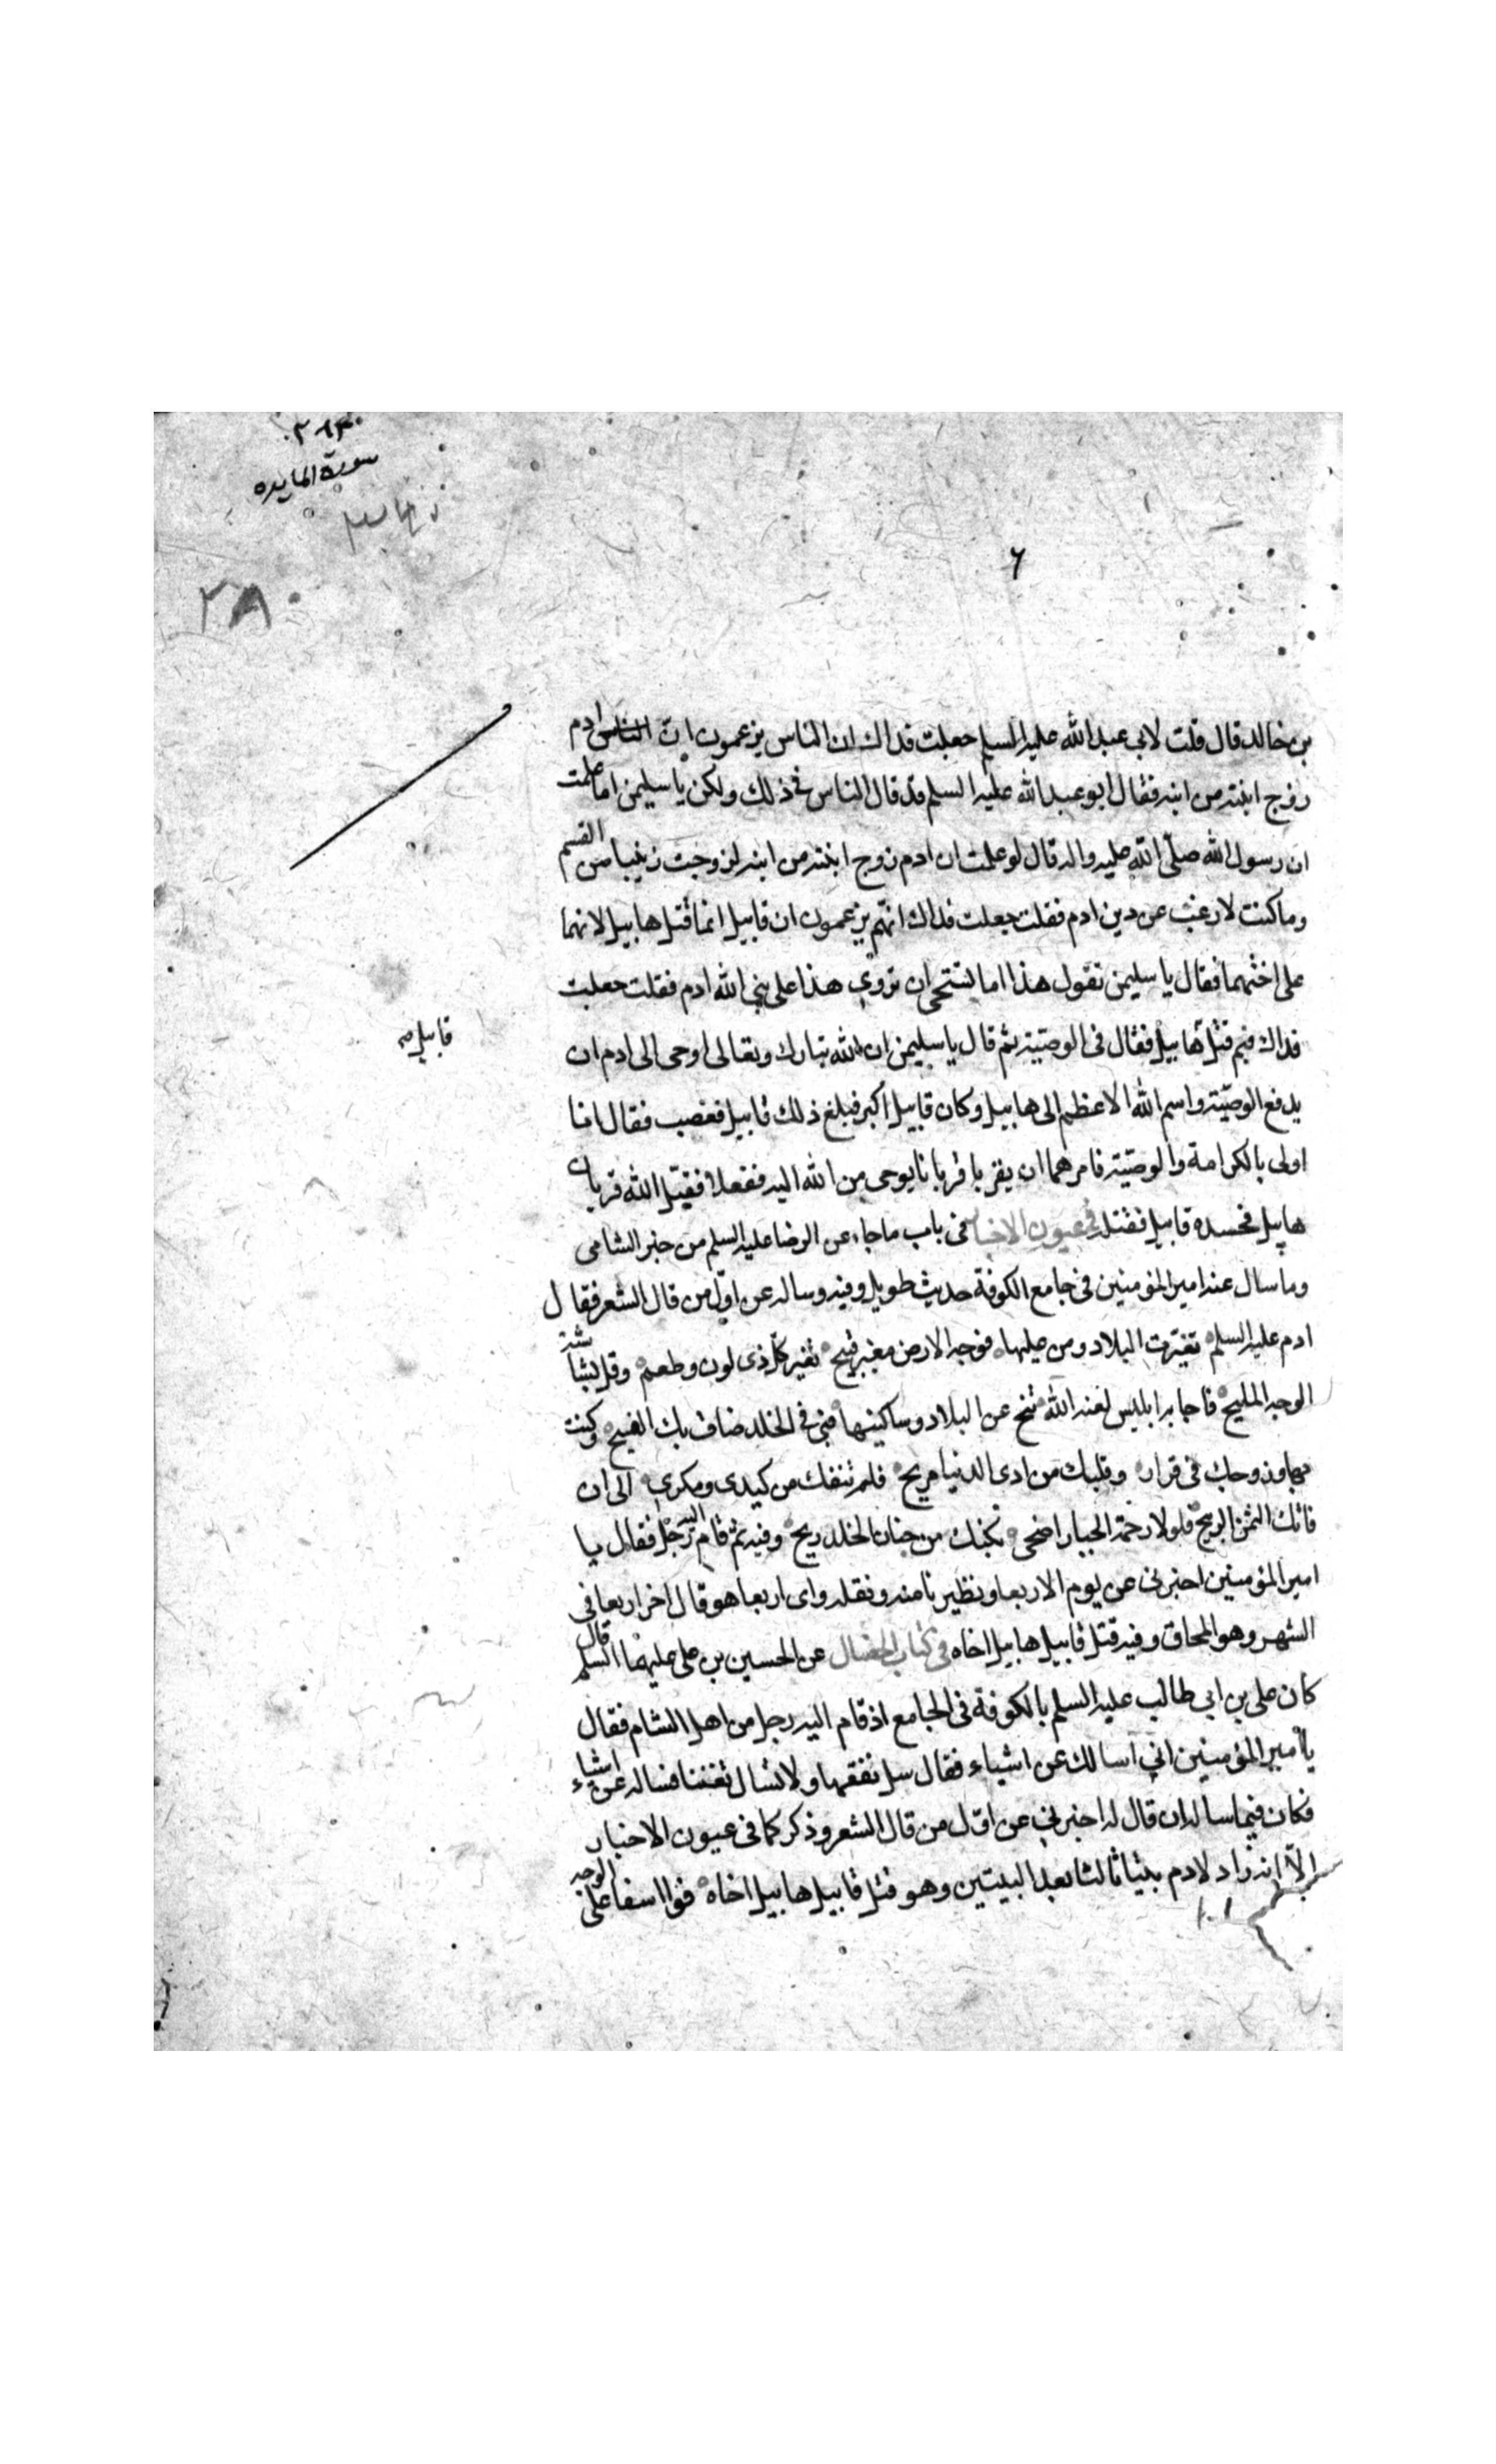 سورة المايده
٣٨
بن خالد قال قلت لابى عبد الله عليه السلم جعلت فداك ان الناس يزعمون ان الناس ادم
زوج ابنته من ابنه فقال ابو عبد الله عليه السلم قد قال الناس فى ذلك ولكن يا سليمن اما علمت
ان رسول الله صلى الله عليه واله قال لو علمت ان ادم زوج ابنته من ابنه لزوجت زينبا من القسم
وما كنت لارغب عن دين ادم فقلت جعلت فداك انهم يزعمون ان قابيل انما قتل هابيل لانهما
على اختهما فقال يا سليمن تقول هذا اما تستحى ان تروى هذا على نبى الله ادم فقلت جعلت
فداك فبم قتل هابيل فقال فى الوصية ثم قال يا سليمن ان الله تبارك وتعالى اوحى الى ادم ان
قابيل صح
يدفع الوصية واسم الله الاعظم الى هابيل وكان قابيل اكبر فبلغ ذلك قابيل فغضب فقال انا
اولى بالكرامة والوصية فامرهما ان يقربا قربانا بوحى من الله اليه ففعلا فقبل الله قربان
هابيل فحسده قابيل فقتله فى عيون الاخبار فى باب ما جاء عن الرضا عليه السلم من خبر الشامى
وما سال عنه امير المؤمنين فى جامع الكوفة حديث طويل وفيه وساله عن اول من قال الشعر فقال
ادم عليه السلم تغيرت البلاد ومن عليها فوجه الارض مغبر قبيح تغير كل ذى لون وطعم وقل بشاشة
الوجه المليح فاجابه ابليس لعنه الله تنح عن البلاد وساكنيها فبى فى الخلد ضاق بك الفسيح وكنت
بها وزوجك فى قرار وقلبك من اذى الدنيا مريح فلم تنفك من كيدى ومكرى الى ان
فاتك الثمن الربيح فلولا رحمة الجبار اضحى بكفك من جنان الخلد ريح وفيه ثم قام اليه رجل فقال يا
امير المؤمنين اخبرنى عن يوم الاربعا وتطيرنا منه وثقله واى اربعا هو قال اخر اربعا فى
الشهر وهو المحاق وفيه قتل قابيل هابيل اخاه فى كتاب الخصال عن الحسين بن على عليهما السلم قال
كان على بن ابى طالب عليه السلم بالكوفة فى الجامع اذ قام اليه رجل من اهل الشام فقال
يا امير المؤمنين انى اسالك عن اشياء فقال سل تفقها ولا تسال تعنتا فساله عن اشياء
فكان فيما ساله ان قال له اخبرنى عن اول من قال الشعر وذكر كما فى عيون الاخبار
الا انه زاد لادم بيتا ثالثا بعد البيتين وهو قتل قابيل هابيل اخاه فوا اسفا على الوجه